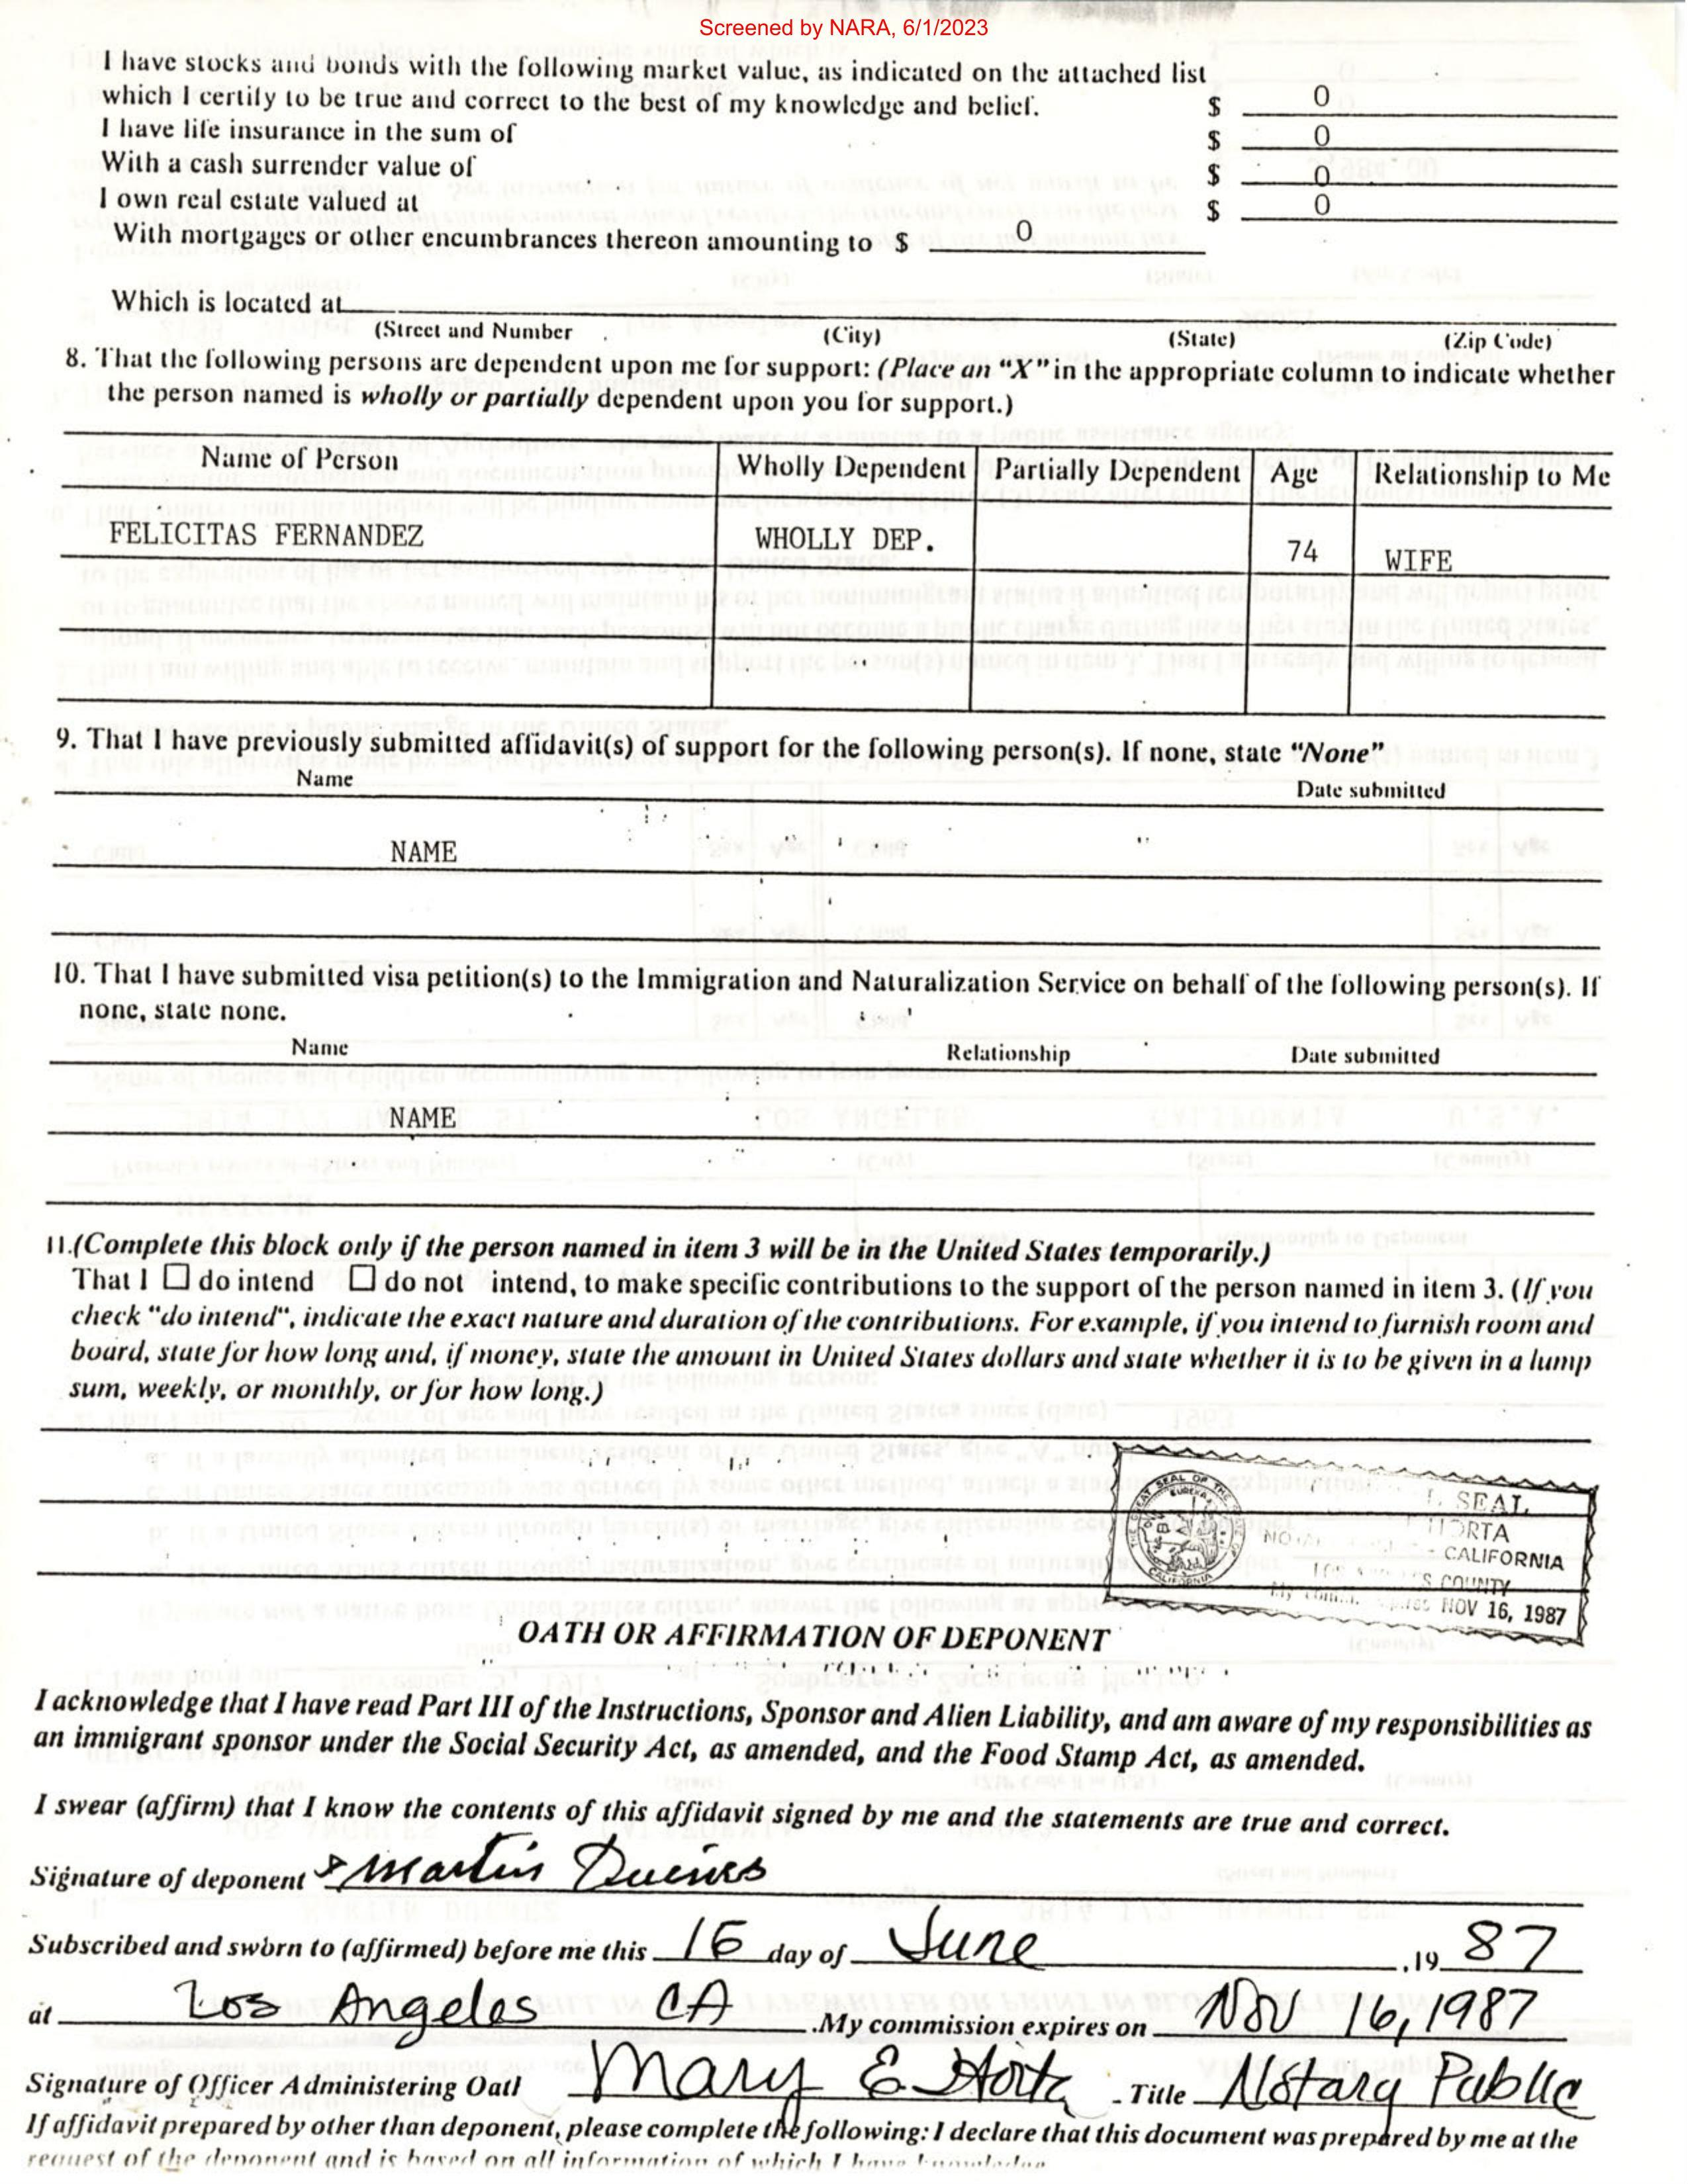 Screened by NARA, 6/1/2023
I have stocks and bonds with the following market value, as indicated on the attached list
which I certify to be true and correct to the best of my knowledge and belief. $ 0
I have life insurance in the sum of $ 0
With a cash surrender value of $ 0
I own real estate valued at $ 0
With mortgages or other encumbrances thereon amounting to $ 0
Which is located at
(Street and Number (City) (State) (Zip Code)
8. That the following persons are dependent upon me for support: (Place an "X" in the appropriate column to indicate whether
the person named is wholly or partially dependent upon you for support.)
Name of Person Wholly Dependent Partially Dependent Age Relationship to Me
FELICITAS FERNANDEZ WHOLLY DEP. 74 WIFE
9. That I have previously submitted affidavit(s) of support for the following person(s). If none, state "None"
Name Date submitted
NAME
10. That I have submitted visa petition(s) to the Immigration and Naturalization Service on behalf of the following person(s). If
none, state none.
Name Relationship Date submitted
NAME
11.(Complete this block only if the person named in item 3 will be in the United States temporarily.)
That I ☐ do intend ☐ do not intend, to make specific contributions to the support of the person named in item 3. (If you
check "do intend", indicate the exact nature and duration of the contributions. For example, if you intend to furnish room and
board, state for how long and, if money, state the amount in United States dollars and state whether it is to be given in a lump
sum, weekly, or monthly, or for how long.)
SEAL
HORTA
CALIFORNIA
COUNTY
NOV 16, 1987
OATH OR AFFIRMATION OF DEPONENT
I acknowledge that I have read Part III of the Instructions, Sponsor and Alien Liability, and am aware of my responsibilities as
an immigrant sponsor under the Social Security Act, as amended, and the Food Stamp Act, as amended.
I swear (affirm) that I know the contents of this affidavit signed by me and the statements are true and correct.
Signature of deponent Martin
Subscribed and sworn to (affirmed) before me this 16 day of June ,19 87
at Los Angeles CA My commission expires on Nov 16, 1987
Signature of Officer Administering Oatl Mary E Horta Title Notary Public
If affidavit prepared by other than deponent, please complete the following: I declare that this document was prepared by me at the
request of the deponent and is based on all information of which I have knowledge